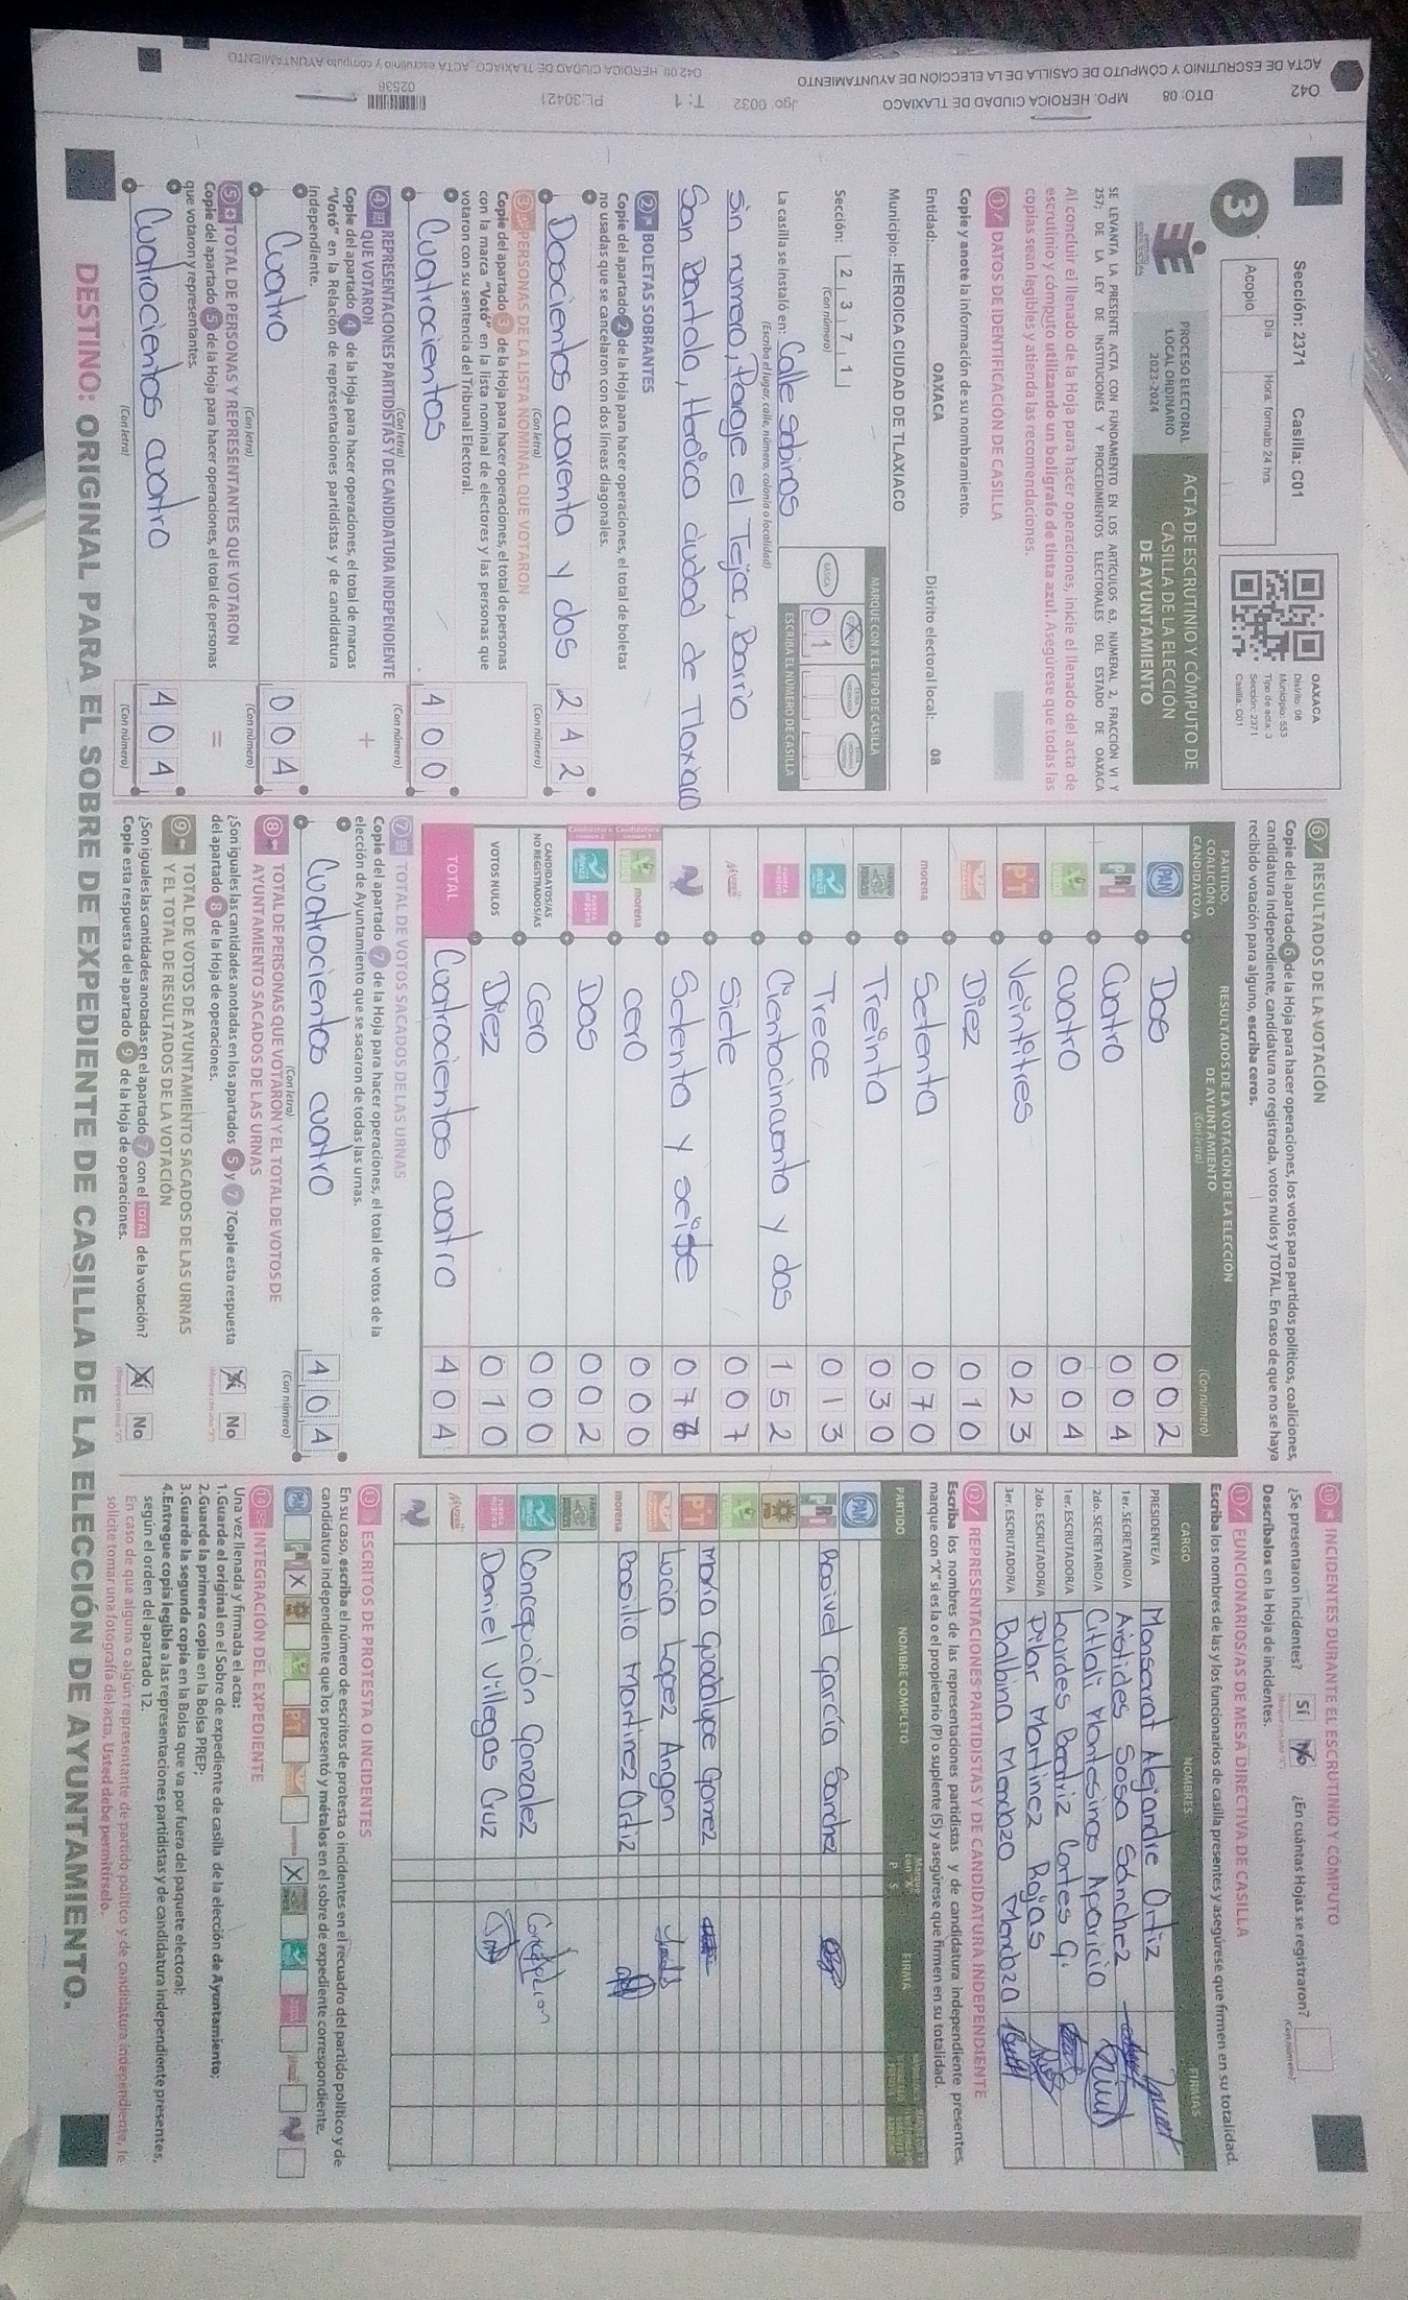 042 DTO: 08 MPO. HEROICA CIUDAD DE TLAXIACO Jgo: 0032 T: 1 PL:30421 02536
ACTA DE ESCRUTINIO Y CÓMPUTO DE CASILLA DE LA ELECCIÓN DE AYUNTAMIENTO
042 08 HEROICA CIUDAD DE TLAXIACO ACTA escrutinio y cómputo AYUNTAMIENTO
Sección: 2371 Casilla: C01
Día Hora: formato 24 hrs.
Acopio
OAXACA
Distrito: 08
Municipio: 553
Tipo de acta: 3
Sección: 2371
Casilla: C01
3
PROCESO ELECTORAL
LOCAL ORDINARIO
2023-2024
ACTA DE ESCRUTINIO Y CÓMPUTO DE
CASILLA DE LA ELECCIÓN
DE AYUNTAMIENTO
SE LEVANTA LA PRESENTE ACTA CON FUNDAMENTO EN LOS ARTÍCULOS 63, NUMERAL 2, FRACCIÓN VI Y
257; DE LA LEY DE INSTITUCIONES Y PROCEDIMIENTOS ELECTORALES DEL ESTADO DE OAXACA
Al concluir el llenado de la Hoja para hacer operaciones, inicie el llenado del acta de
escrutinio y cómputo utilizando un bolígrafo de tinta azul. Asegúrese que todas las
copias sean legibles y atienda las recomendaciones.
1 DATOS DE IDENTIFICACIÓN DE CASILLA
Copie y anote la información de su nombramiento.
Entidad: OAXACA Distrito electoral local: 08
Municipio: HEROICA CIUDAD DE TLAXIACO
MARQUE CON X EL TIPO DE CASILLA
Sección: 2 3 7 1
(Con número)
BÁSICA X
0 1
ESCRIBA EL NÚMERO DE CASILLA
La casilla se instaló en: Calle Sabinos
(Escriba el lugar, calle, número, colonia o localidad)
sin numero, Paraje el Tejoc, Barrio
San Bartolo, Heroica ciudad de Tlaxiaco
2 BOLETAS SOBRANTES
Copie del apartado 2 de la Hoja para hacer operaciones, el total de boletas
no usadas que se cancelaron con dos líneas diagonales.
Doscientos cuarenta y dos 2 4 2
(Con letra) (Con número)
3 PERSONAS DE LA LISTA NOMINAL QUE VOTARON
Copie del apartado 3 de la Hoja para hacer operaciones, el total de personas
con la marca "Votó" en la lista nominal de electores y las personas que
votaron con su sentencia del Tribunal Electoral.
Cuatrocientos 4 0 0
(Con letra) (Con número)
4 REPRESENTACIONES PARTIDISTAS Y DE CANDIDATURA INDEPENDIENTE
QUE VOTARON +
Copie del apartado 4 de la Hoja para hacer operaciones, el total de marcas
"Votó" en la Relación de representaciones partidistas y de candidatura
independiente.
Cuatro 0 0 4
(Con letra) (Con número)
5 TOTAL DE PERSONAS Y REPRESENTANTES QUE VOTARON
Copie del apartado 5 de la Hoja para hacer operaciones, el total de personas
que votaron y representantes. =
Cuatrocientos cuatro 4 0 4
(Con letra) (Con número)
6 RESULTADOS DE LA VOTACIÓN
Copie del apartado 6 de la Hoja para hacer operaciones, los votos para partidos políticos, coaliciones,
candidatura independiente, candidatura no registrada, votos nulos y TOTAL. En caso de que no se haya
recibido votación para alguno, escriba ceros.
PARTIDO,
COALICIÓN O
CANDIDATO/A
RESULTADOS DE LA VOTACIÓN DE LA ELECCIÓN
DE AYUNTAMIENTO
(Con letra) (Con número)
PAN Dos 0 0 2
PRI Cuatro 0 0 4
cuatro 0 0 4
PT Veintitres 0 2 3
Diez 0 1 0
morena Setenta 0 7 0
Treinta 0 3 0
Trece 0 1 3
Cientocincuenta y dos 1 5 2
Siete 0 0 7
Setenta y seis 0 7
morena cero 0 0 0
Dos 0 0 2
CANDIDATOS/AS
NO REGISTRADOS/AS Cero 0 0 0
VOTOS NULOS Diez 0 1 0
TOTAL Cuatrocientos cuatro 4 0 4
7 TOTAL DE VOTOS SACADOS DE LAS URNAS
Copie del apartado 7 de la Hoja para hacer operaciones, el total de votos de la
elección de Ayuntamiento que se sacaron de todas las urnas.
Cuatrocientos cuatro 4 0 4
(Con letra) (Con número)
8 TOTAL DE PERSONAS QUE VOTARON Y EL TOTAL DE VOTOS DE
AYUNTAMIENTO SACADOS DE LAS URNAS
¿Son iguales las cantidades anotadas en los apartados 5 y 7 ?Copie esta respuesta
del apartado 8 de la Hoja de operaciones. Sí No
9 TOTAL DE VOTOS DE AYUNTAMIENTO SACADOS DE LAS URNAS
Y EL TOTAL DE RESULTADOS DE LA VOTACIÓN
¿Son iguales las cantidades anotadas en el apartado 7 con el TOTAL de la votación?
Copie esta respuesta del apartado 9 de la Hoja de operaciones. Sí No
10 INCIDENTES DURANTE EL ESCRUTINIO Y CÓMPUTO
¿Se presentaron incidentes? Sí No ¿En cuántas Hojas se registraron?
(Con número)
Descríbalos en la Hoja de incidentes.
11 FUNCIONARIOS/AS DE MESA DIRECTIVA DE CASILLA
Escriba los nombres de las y los funcionarios de casilla presentes y asegúrese que firmen en su totalidad.
CARGO NOMBRES FIRMAS
PRESIDENTE/A Monserrat Alejandre Ortiz
1er. SECRETARIO/A Aristides Sosa Sánchez
2do. SECRETARIO/A Citlali Montesinos Aparicio
1er. ESCRUTADOR/A Lourdes Beatriz Cortes G.
2do. ESCRUTADOR/A Pilar Martinez Rojas
3er. ESCRUTADOR/A Balbina Mendoza Mendoza
12 REPRESENTACIONES PARTIDISTAS Y DE CANDIDATURA INDEPENDIENTE
Escriba los nombres de las representaciones partidistas y de candidatura independiente presentes,
marque con "X" si es la o el propietario (P) o suplente (S) y asegúrese que firmen en su totalidad.
PARTIDO NOMBRE COMPLETO P S FIRMA
PAN
PRI garcía Sanchez
PT Maria Guadalupe Gomez
Lucio Lopez Angon
morena Basilio Martinez Ortiz
Concepción Gonzalez Concepcion
Daniel Villegas Cruz
13 ESCRITOS DE PROTESTA O INCIDENTES
En su caso, escriba el número de escritos de protesta o incidentes en el recuadro del partido político y de
candidatura independiente que los presentó y métalos en el sobre de expediente correspondiente.
PAN PRI X PT X
14 INTEGRACIÓN DEL EXPEDIENTE
Una vez llenada y firmada el acta:
1.Guarde el original en el Sobre de expediente de casilla de la elección de Ayuntamiento;
2.Guarde la primera copia en la Bolsa PREP;
3.Guarde la segunda copia en la Bolsa que va por fuera del paquete electoral;
4.Entregue copia legible a las representaciones partidistas y de candidatura independiente presentes,
según el orden del apartado 12.
En caso de que alguna o algún representante de partido político y de candidatura independiente, le
solicite tomar una fotografía del acta, Usted debe permitírselo.
DESTINO: ORIGINAL PARA EL SOBRE DE EXPEDIENTE DE CASILLA DE LA ELECCIÓN DE AYUNTAMIENTO.